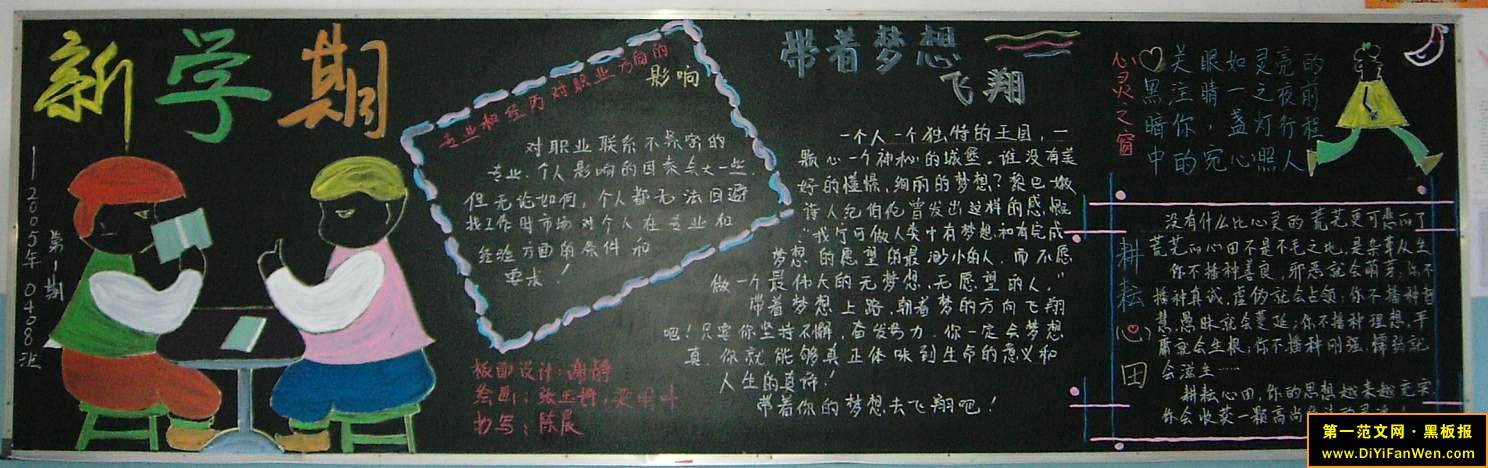 新学期
2005年第1期 0408班
专业和经历对职业方向的
影响
对职业联系不紧密的
专业,个人影响的因素会大一些,
但无论如何,个人都无法回避
找工作时市场对个人在专业和
经验方面的条件和
要求!
板面设计:谢静
绘画:
抄写:陈晨
带着梦想
飞翔
一个人一个独特的王国,一
颗心一个神秘的城堡。谁没有美
好的憧憬,绚丽的梦想?黎巴嫩
诗人纪伯伦曾发出这样的感慨
“我宁可做人类中有梦想和有完成
梦想的愿望的最渺小的人,而不愿
做一个最伟大的无梦想、无愿望的人。”
带着梦想上路,朝着梦的方向飞翔
吧!只要你坚持不懈,奋发努力,你一定会梦想
真,你就能够真正体味到生命的意义和
人生的真谛!
带着你的梦想,去飞翔吧!
心灵之窗
关眼如灵亮的
黑注睛一之夜前
暗你,盏灯行程
中的宛心照人
耕耘心田
没有什么比心灵的荒芜更可悲的了
荒芜的心田不是不毛之地,是杂草丛生
你不播种善良,邪恶就会萌芽;你不
播种真诚,虚伪就会占领;你不播种智
慧,愚昧就会蔓延;你不播种理想,平
庸就会生根;你不播种刚强,懦弱就
会滋生……
耕耘心田,你的思想越来越充实
你会收获一颗高尚
第一范文网·黑板报
www.DiYiFanWen.com